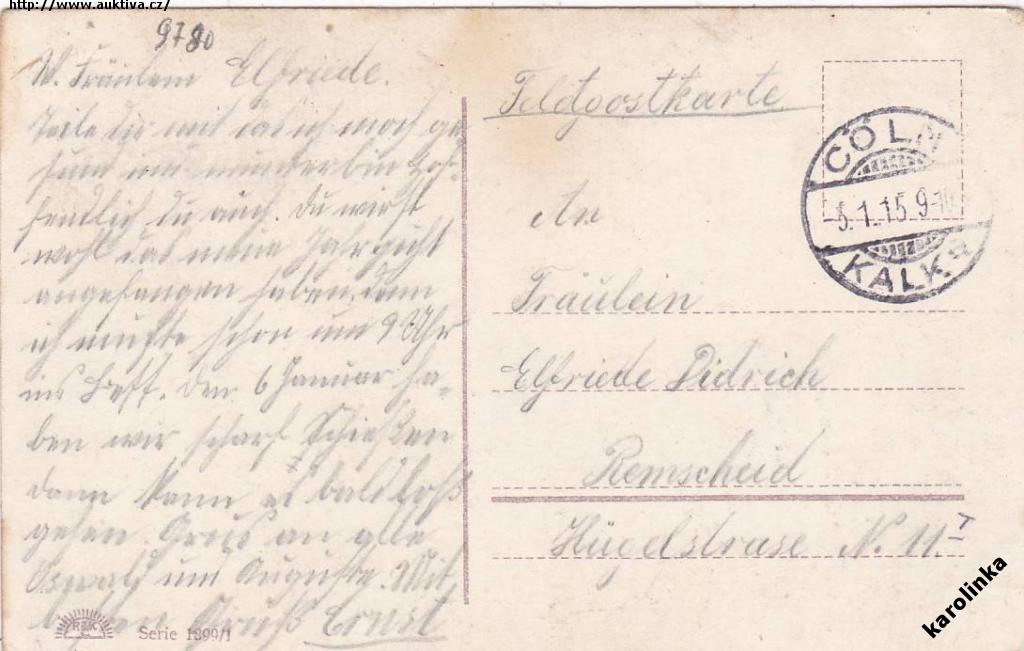 http://www.auktiva.cz/
9780
W. Fräulein Elfriede.
Teile dir mit das ich noch ge
sund und munter bin hof-
fendlich du auch. Du wirst
wohl das neue Jahr gut
angefangen haben, denn
ich mußte schon um 9 Uhr
ins Bett. Den 6 Januar ha-
ben wir scharf Schießen
dann kann es bald loß
gehen. Gruß an alle
Oswald und Auguste. Mit
Gruß Ernst
Serie 1899/1
Feldpostkarte
CÖLN
5.1.15.9-10
KALK
An
Fräulein
Elfriede Didrich
Remscheid
Hügelstrase N. 11.
karolinka